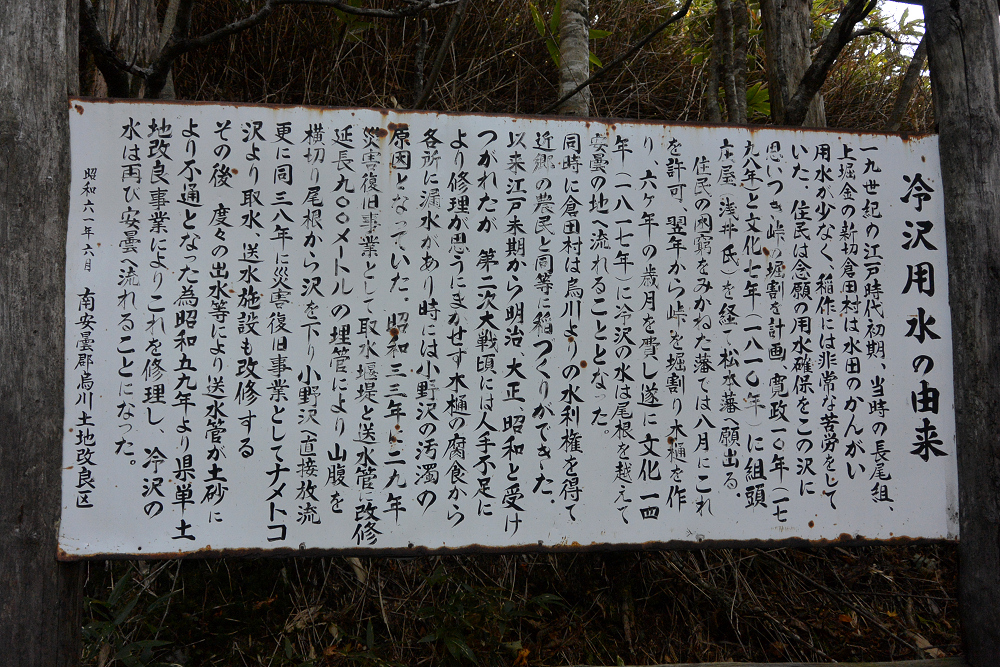 冷沢用水の由来
一九世紀の江戸時代初期、当時の長尾組、
上堀金の新切倉田村は水田のかんがい
用水が少なく、稲作には非常な苦労をして
いた。住民は念願の用水確保をこの沢に
思いつき峠の堀割を計画、寛政一〇年(一七
九八年)と文化七年(一八一〇年)に組頭
庄屋(浅井氏)を経て松本藩へ願出る。
住民の困窮をみかねた藩では八月にこれ
を許可、翌年から峠を堀割り木樋を作
り、六ヶ年の歳月を費し遂に文化一四
年(一八一七年)に冷沢の水は尾根を越えて
安曇の地へ流れることとなった。
同時に倉田村は烏川よりの水利権を得て
近郷の農民と同等に稲づくりができた。
以来江戸末期から明治、大正、昭和と受け
つがれたが 第二次大戦頃には人手不足に
より修理が思うにまかせず木樋の腐食から
各所に漏水があり時には小野沢の汚濁の
原因となっていた。昭和三三年に二九年
災害復旧事業として取水堰堤と送水管に改修
延長九〇〇メートルの埋管により山腹を
横切り尾根から沢を下り小野沢へ直接放流
更に同三八年に災害復旧事業としてナメトコ
沢より取水、送水施設も改修する
その後 度々の出水等により送水管が土砂に
より不通となった為昭和五九年より県単土
地改良事業によりこれを修理し、冷沢の
水は再び安曇へ流れることになった。
昭和六一年六月 南安曇郡烏川土地改良区